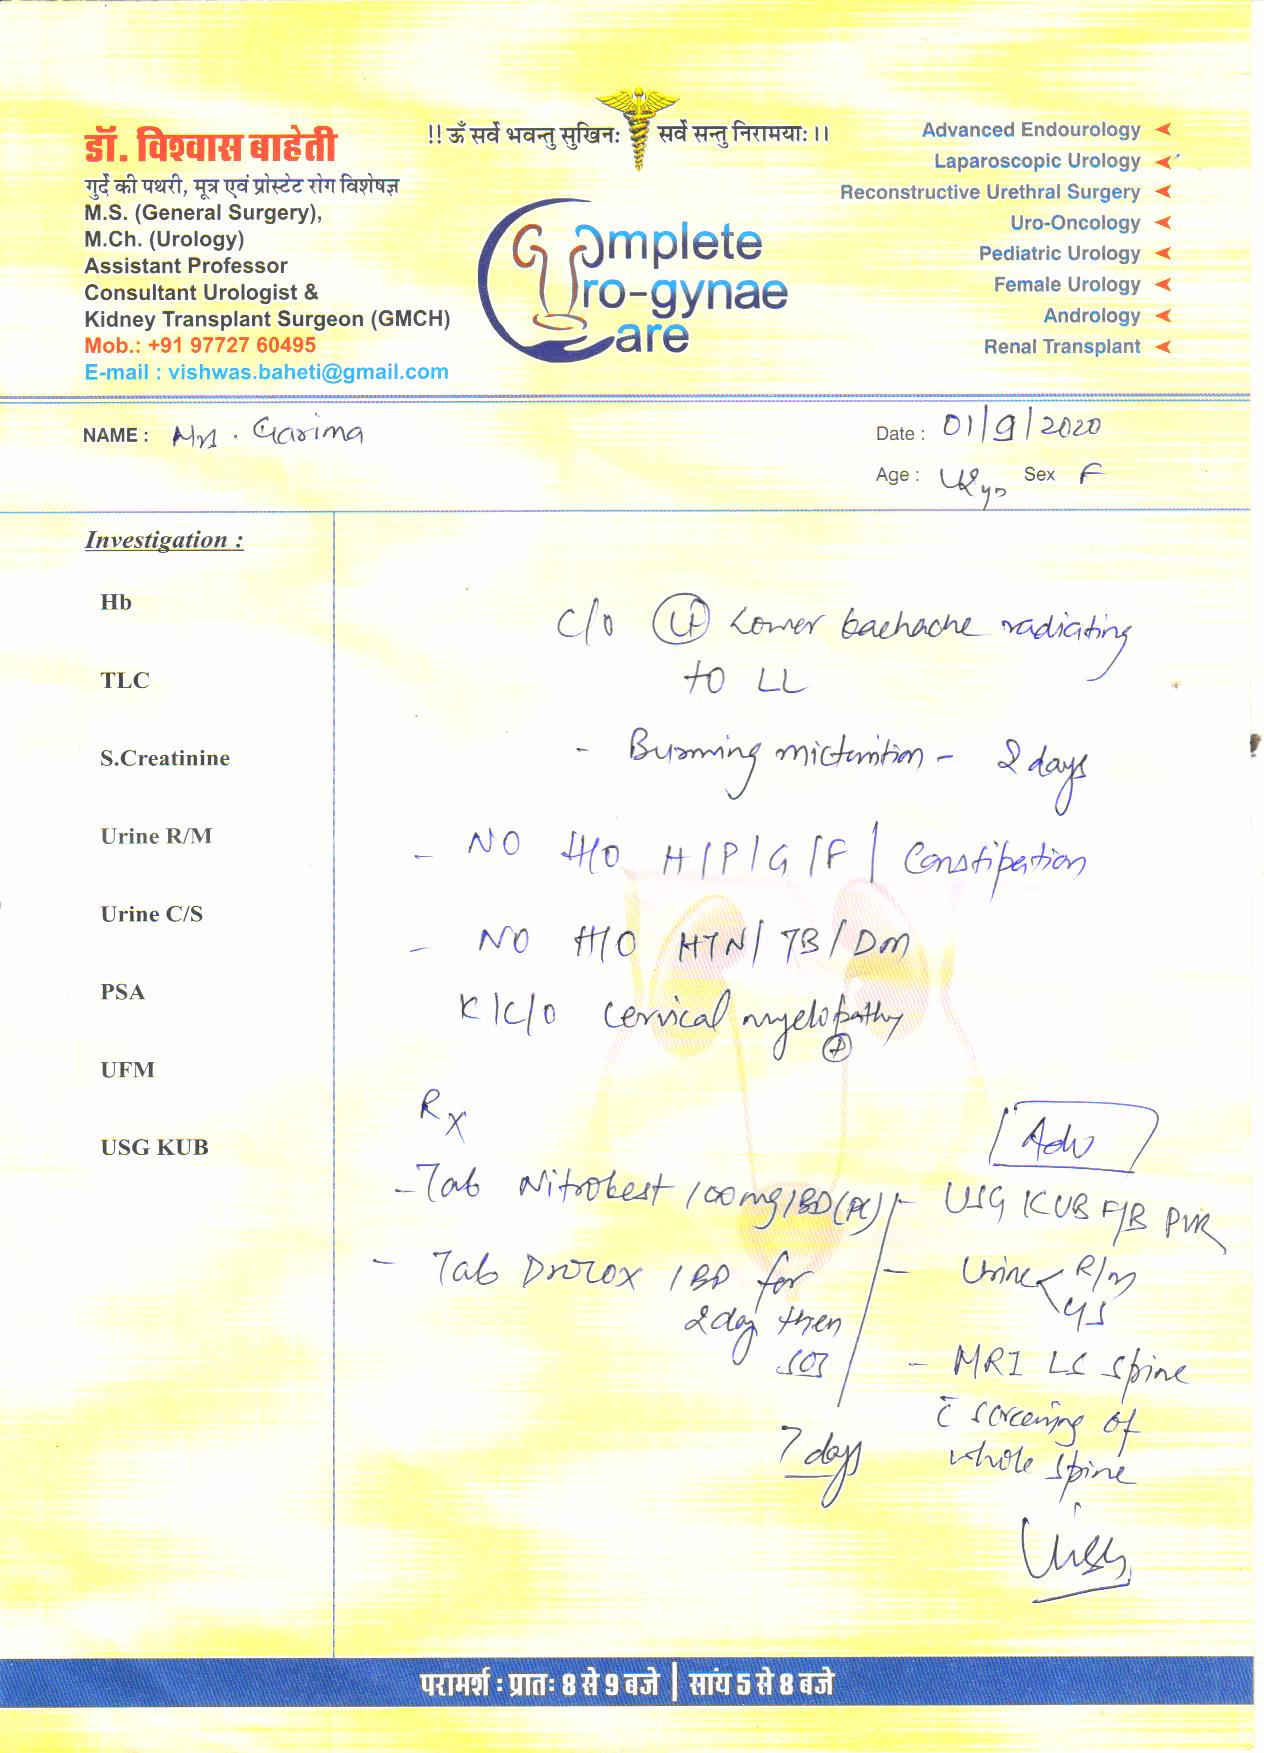 !! ॐ सर्वे भवन्तु सुखिनः सर्वे सन्तु निरामयाः ।।
डॉ. विश्वास बाहेती
गुर्दे की पथरी, मूत्र एवं प्रोस्टेट रोग विशेषज्ञ
M.S. (General Surgery),
M.Ch. (Urology)
Assistant Professor
Consultant Urologist &
Kidney Transplant Surgeon (GMCH)
Mob.: +91 97727 60495
E-mail : vishwas.baheti@gmail.com
Complete
Uro-gynae
Care
Advanced Endourology
Laparoscopic Urology
Reconstructive Urethral Surgery
Uro-Oncology
Pediatric Urology
Female Urology
Andrology
Renal Transplant
NAME : Mrs. Garima
Date : 01/9/2020
Age : Sex F
Investigation :
Hb
TLC
S.Creatinine
Urine R/M
Urine C/S
PSA
UFM
USG KUB
C/O Lower backache radiating
to LL
- Burning micturition - 2 days
- NO H/O H/P/G/F/ Constipation
- NO H/O HTN/ TB/ DM
K/C/O Cervical myelopathy
Rx
- Tab Nitrobest 100mg 1BD (PC)
- Tab 1BD for
2 day then
SOS
7 days
Adv
- USG KUB F/B PVR
- Urine R/M
C/S
- MRI LS spine
c̄ screening of
whole spine
परामर्श : प्रातः 8 से 9 बजे | सांय 5 से 8 बजे